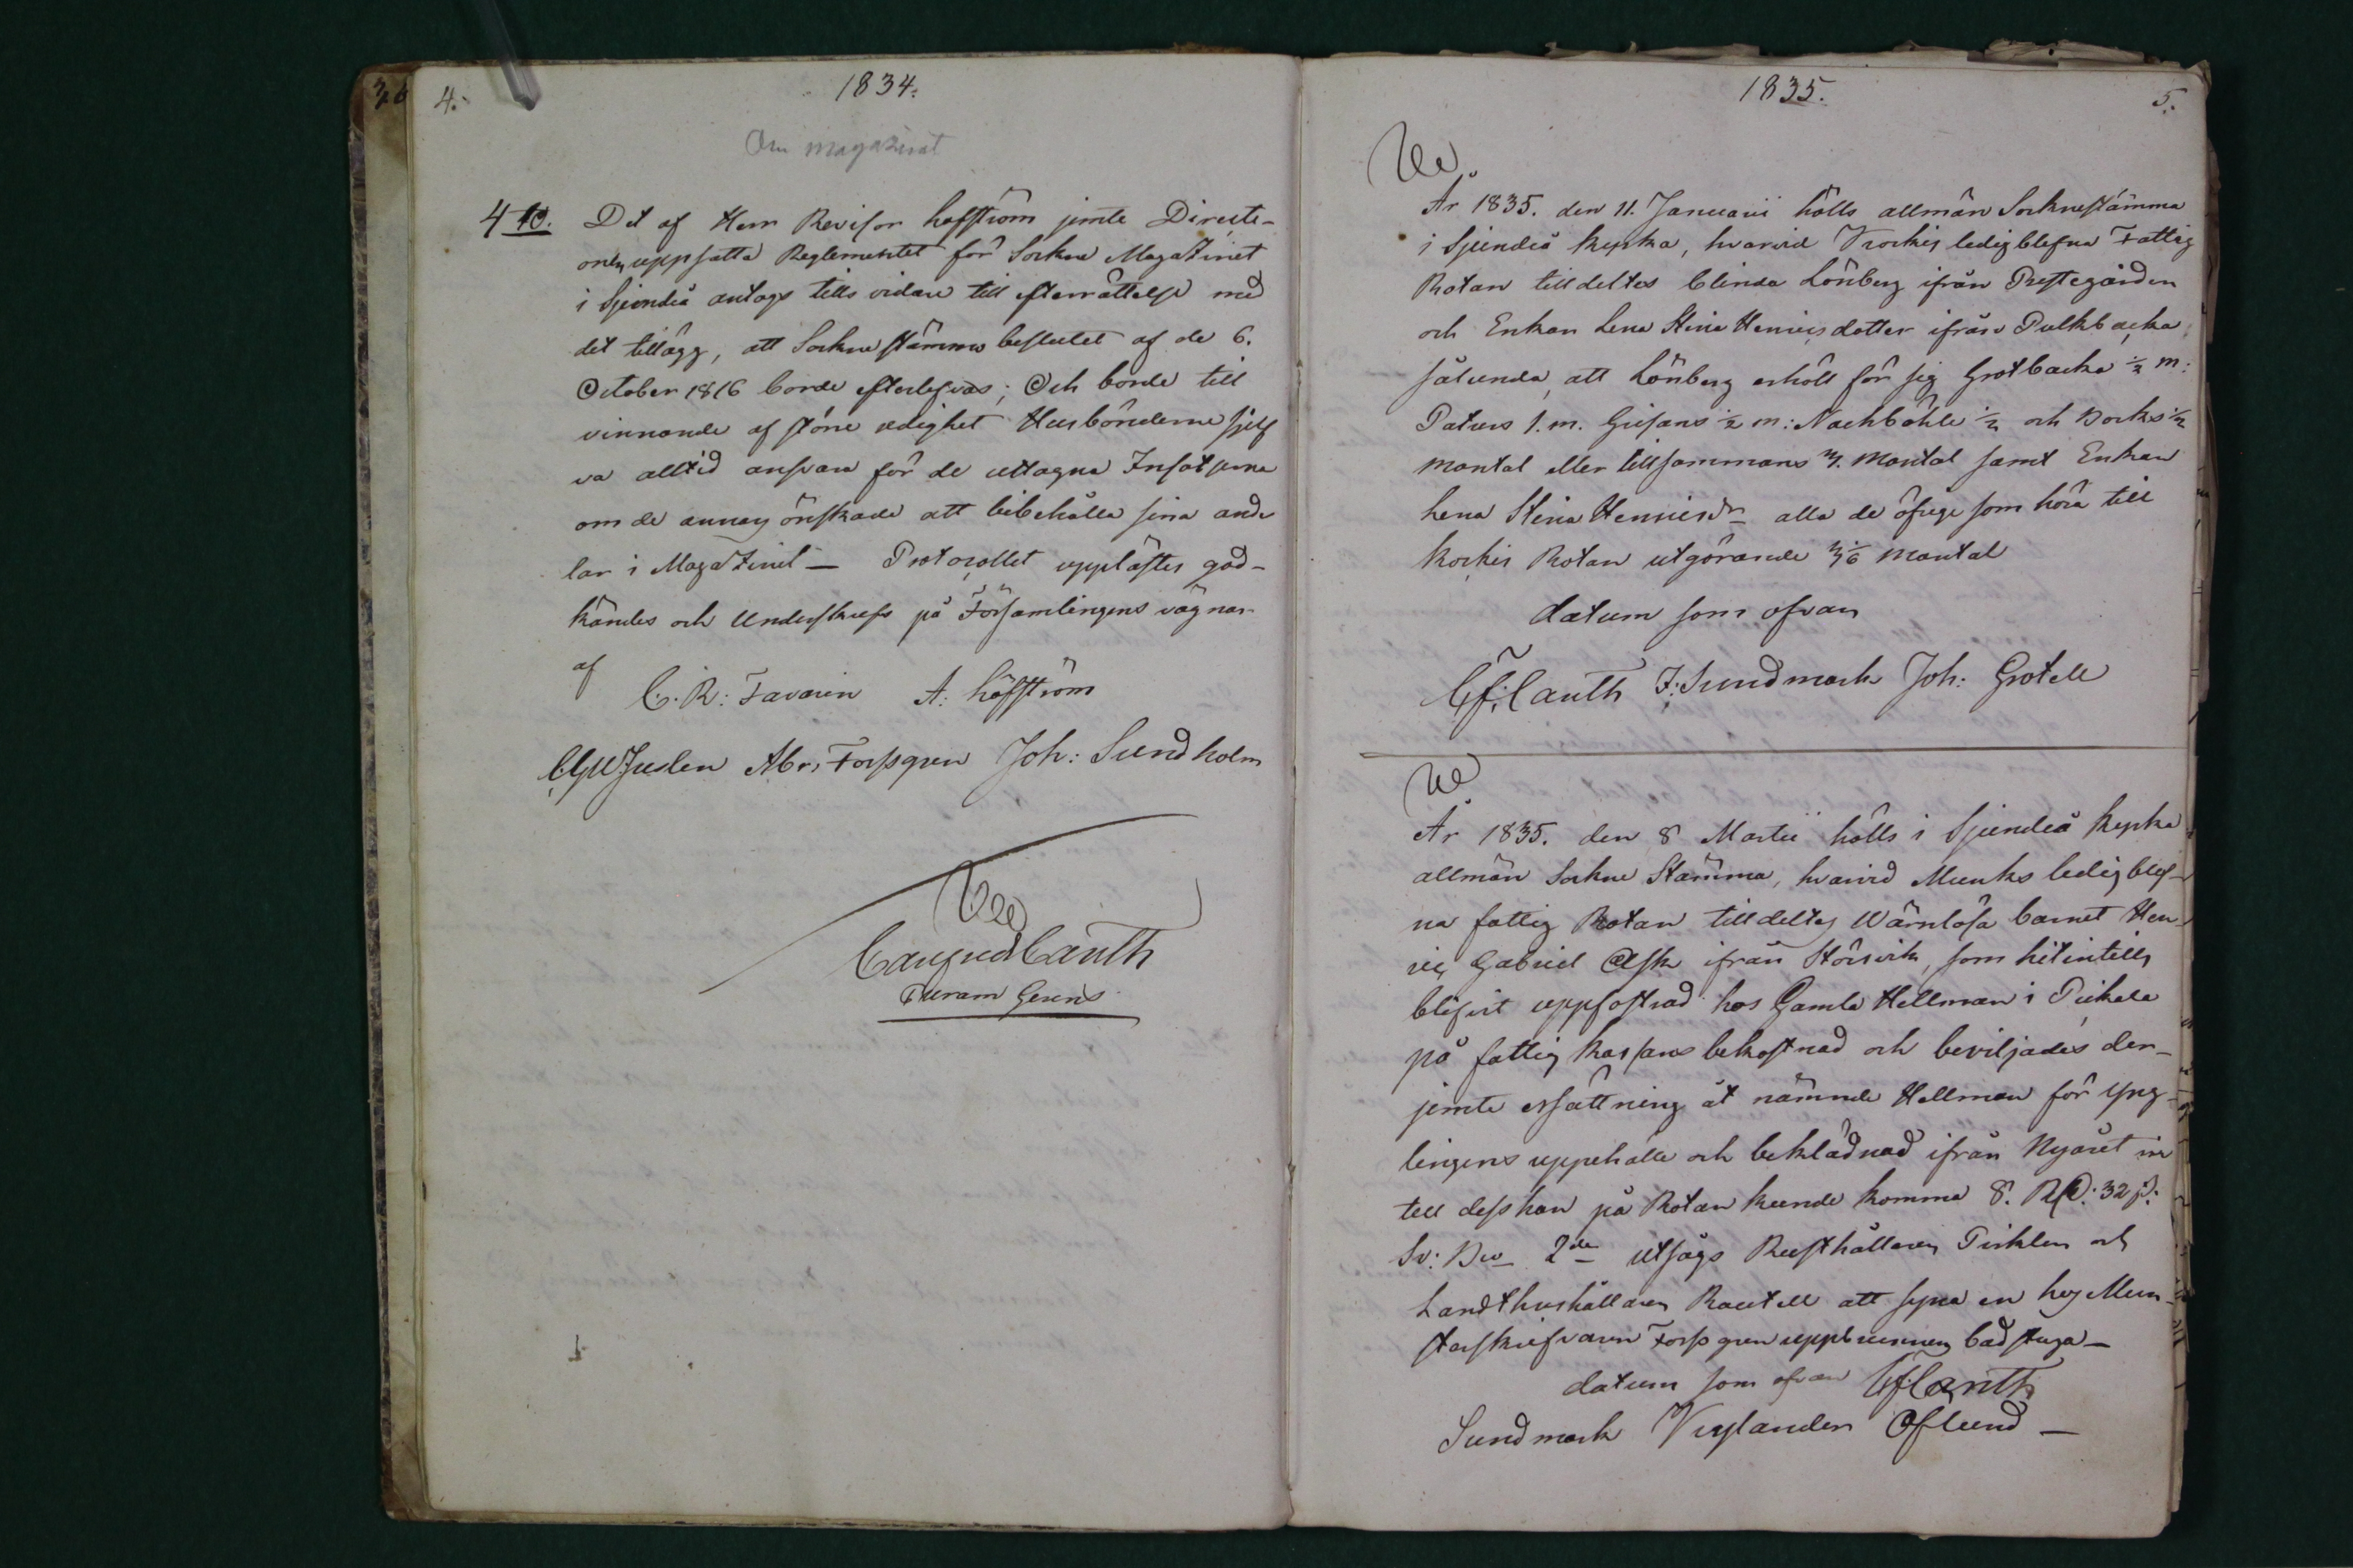 4.
1834.
Om magazinet
4 to. Det af Herr Revisor Hofström jemte Directi-
onen uppsatta Reglementet för Sockne Magazinet
i Sjundeå antogs tills vidare till efterrättelse med
det tillägg, att Sockne stämmo beslutet af de 6.
October 1816 borde efterlefvas; Och borde till
vinnande af större redighet Husbönderne sjelf
va alltid ansvara för de uttagna Insatserna
om de annars önskade att bibehålla sina ande
lar i Magazinet — Protocollet upplästes god-
kändes och underskrefs på Församlingens vägnar
af
C. R: Favorin A: Hofström
Abr: Forssgren Joh: Sundholm
Canth
1835.
5.
År 1835. den 11. Januarii hölls allmän Socknestämma
i Sjundeå kyrka, hvarvid Krockis ledigblefna Fattig
Rotan tilldeltes blinda Lönberg ifrån Prestegården
och Enkan Lena Stina Henricsdotter ifrån Pulkbacka
sålunda att Lönberg erhöll för sig Grotbacka ½ m:
Paturs 1. m. Grisans ½ m: Nackböhle ½ och Borks ½
mantal eller tillsammans 3. Mantal samt Enkan
Lena Stina Henricsdr alla de öfrige som höra till
Kockis Rotan utgörande mantal
datum som ofvan
C f: Canth F: Sundmark Joh: Grotell
År 1835. den 8 Martii hölls i Sjundeå kyrka
allmän Sockne Stämma, hvarvid Munks ledig blef-
na fattig Rotan tilldeltes Wärnlösa barnet Hen-
ric Gabriel Ask ifrån Störsvik, som hitintills
blifvit uppfostrad hos Gamla Hellman i Pickala
på fattig kassans bekostnad och beviljades der-
jemte ersättning åt nämnde Hellman för yng-
lingens uppehälle och beklädnad ifrån Nyåret in
till dess han på Rotan kunde komma 8. RD: 32 s:
Sv: Bco 2de utsågs Rusthållaren Pirklen och
Landthushållaren Rautell att syna en hos Mun-
sterskrifvaren Forssgren uppbrunnen badstuga —
datum som ofvan Cf: Canth
Sundmark Öflund —